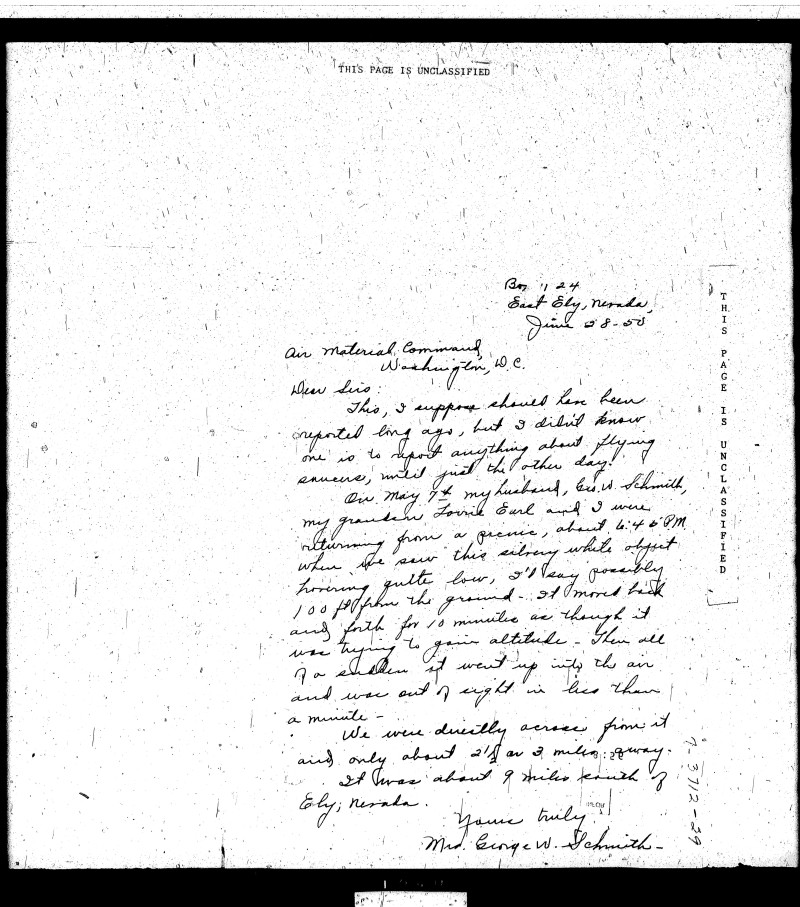 THIS PAGE IS UNCLASSIFIED
Box 124
East Ely, Nevada,
June 28-50
Air Material Command,
Washington, D.C.
Dear Sirs:
This, I suppose should have been
reported long ago, but I didn't know
one is to report anything about flying
saucers, until just the other day.
On May 7th my husband, Geo. W. Schmith,
my grandson Lorrie Earl and I were
returning from a picnic, about 6:45 PM
when we saw this silvery white object
hovering quite low, I'd say possibly
100 ft from the ground - It moved back
and forth for 10 minutes as though it
was trying to gain altitude - Then all
of a sudden it went up into the air
and was out of sight in less than
a minute -
We were directly across from it
and only about 2½ or 3 miles away.
It was about 9 miles south of
Ely, Nevada.
Yours truly
Mrs. George W. Schmith -
THIS PAGE IS UNCLASSIFIED
7-3712-29